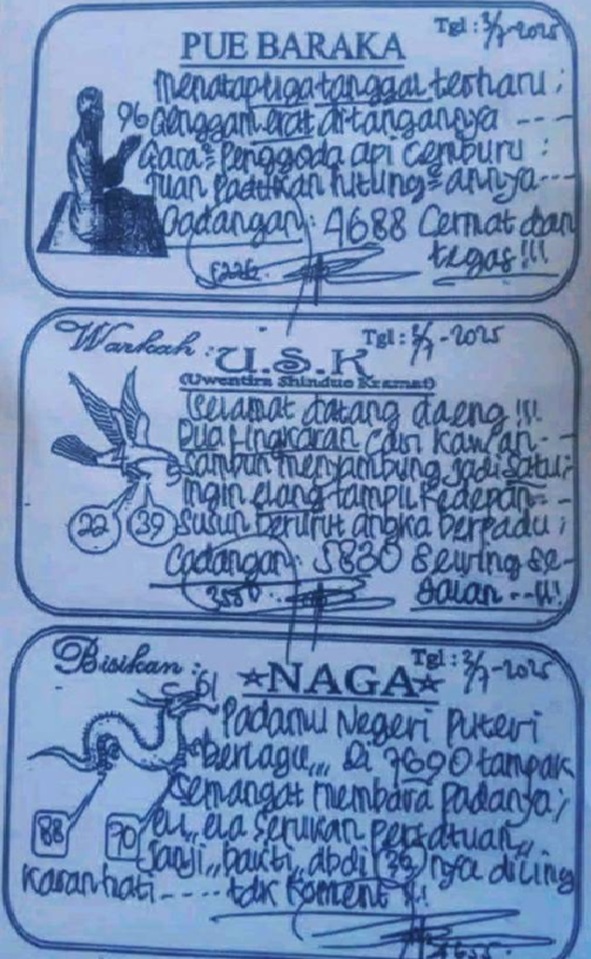 PUE BARAKA
Tgl : 3/7-2025
Menatap tiga tanggal terharu ;
96 Genggam erat di tangannya ----
Gara² Penggoda api cemburu :
Tuan Pastikan hitung²annya---
Cadangan : 4688 Cermat dan
tegas !!!
Warkah : U.S.K
Tgl : 3/7-2025
(Uwentira Shinduo Kramat)
Selamat datang daeng !!!
Dua lingkaran cari kawan---
Sambun menyambung jadi satu;
22 39
Ingin elang tampil kedepan---
Susun berurut angka berpadu ;
Cadangan : 5830 Sewing se-
Jalan --!!!
Bisikan : ☆NAGA☆
Tgl : 3/7-2025
61
Padamu Negeri Puteri
berlagu,,, Di 7690 tampak
Semangat membara Padanya;
88 90
Janji,, bakti,, abdi 36 nya diling
karan hati ---- tdk koment !!!